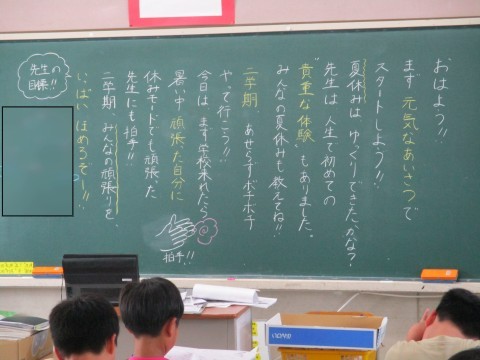 おはよう!!
まず 元気なあいさつで
スタートしよう!!
夏休みは ゆっくりできたかな?
先生は 人生で初めての
"貴重な体験" もありました。
みんなの夏休みも教えてね!!
二学期 あせらずボチボチ
やって行こう!!
今日は まず学校来れたら
暑い中 頑張った自分に
拍手!!
休みモードでも頑張った
先生にも拍手!!
二学期、みんなの頑張りを、
いっぱい ほめるぞー!!
先生の
目標!!